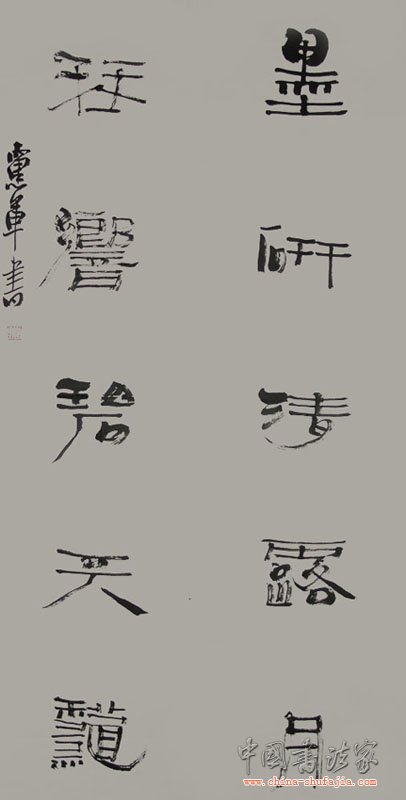 墨研清露月
琴響碧天龝
軍書
中國書法家
www.china-shufajia.com